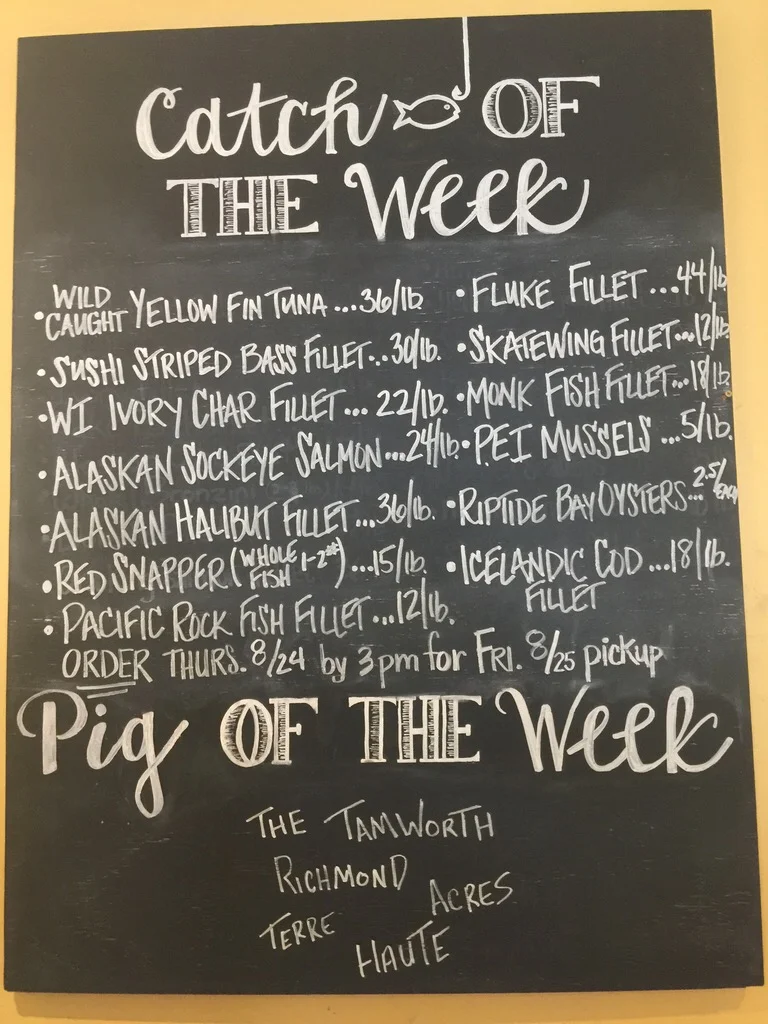 Catch OF
THE Week
• WILD CAUGHT YELLOW FIN TUNA ... 36/lb
• SUSHI STRIPED BASS FILLET... 30/lb.
• WI IVORY CHAR FILLET... 22/lb.
• ALASKAN SOCKEYE SALMON ...24/lb
• ALASKAN HALIBUT FILLET...36/lb.
• RED SNAPPER (WHOLE FISH 1-2#) ...15/lb.
• PACIFIC ROCK FISH FILLET...12/lb.
• FLUKE FILLET ...44/lb
• SKATEWING FILLET...12/lb
• MONK FISH FILLET...18/lb
• PEI MUSSELS ...5/lb.
• RIPTIDE BAY OYSTERS... 2.5/EACH
• ICELANDIC COD ...18/lb.
FILLET
ORDER THURS. 8/24 by 3pm for FRI. 8/25 pickup
Pig OF THE Week
THE TAMWORTH
RICHMOND
ACRES
TERRE
HAUTE